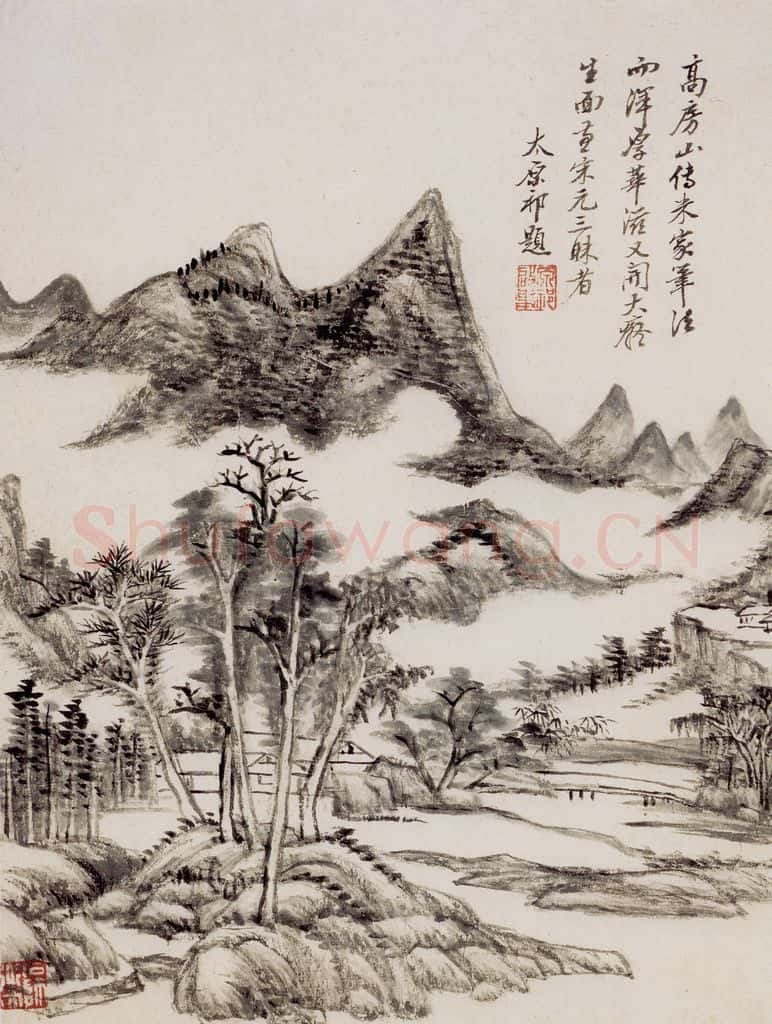 高房山傳米家筆法
而渾厚華滋又開大癡
生面直宋元三昧者
太原祁題
Shufawang.CN